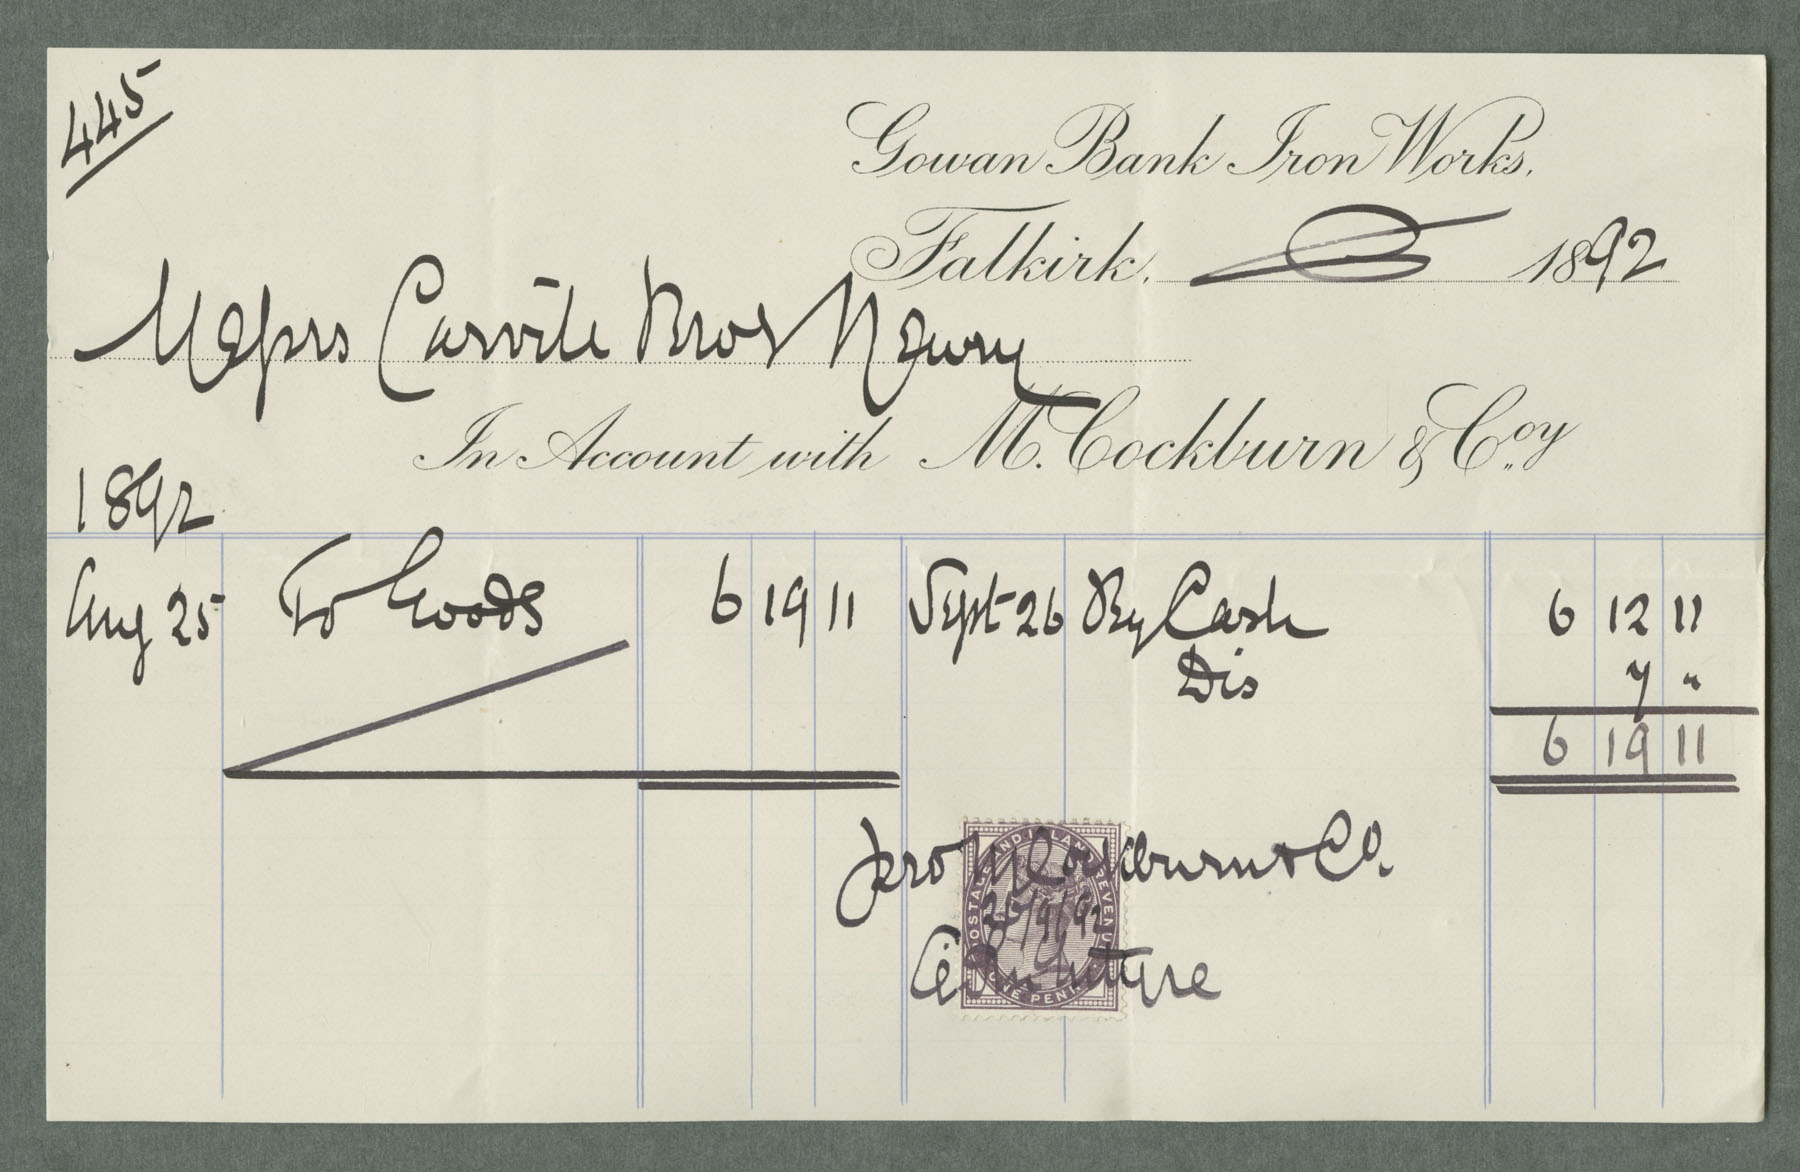 445
Gowan Bank Iron Works,
Falkirk, 1892
Messrs Carvile Bros Newry
In Account with M. Cockburn & Coy
1892
Aug 25 To Goods 6 19 11 Sept 26 By Cash 6 12 11
Dis 7 "
6 19 11
pro M Cockburn & Co.
POSTAGE AND INLAND REVENUE
26/9/92
ONE PENNY